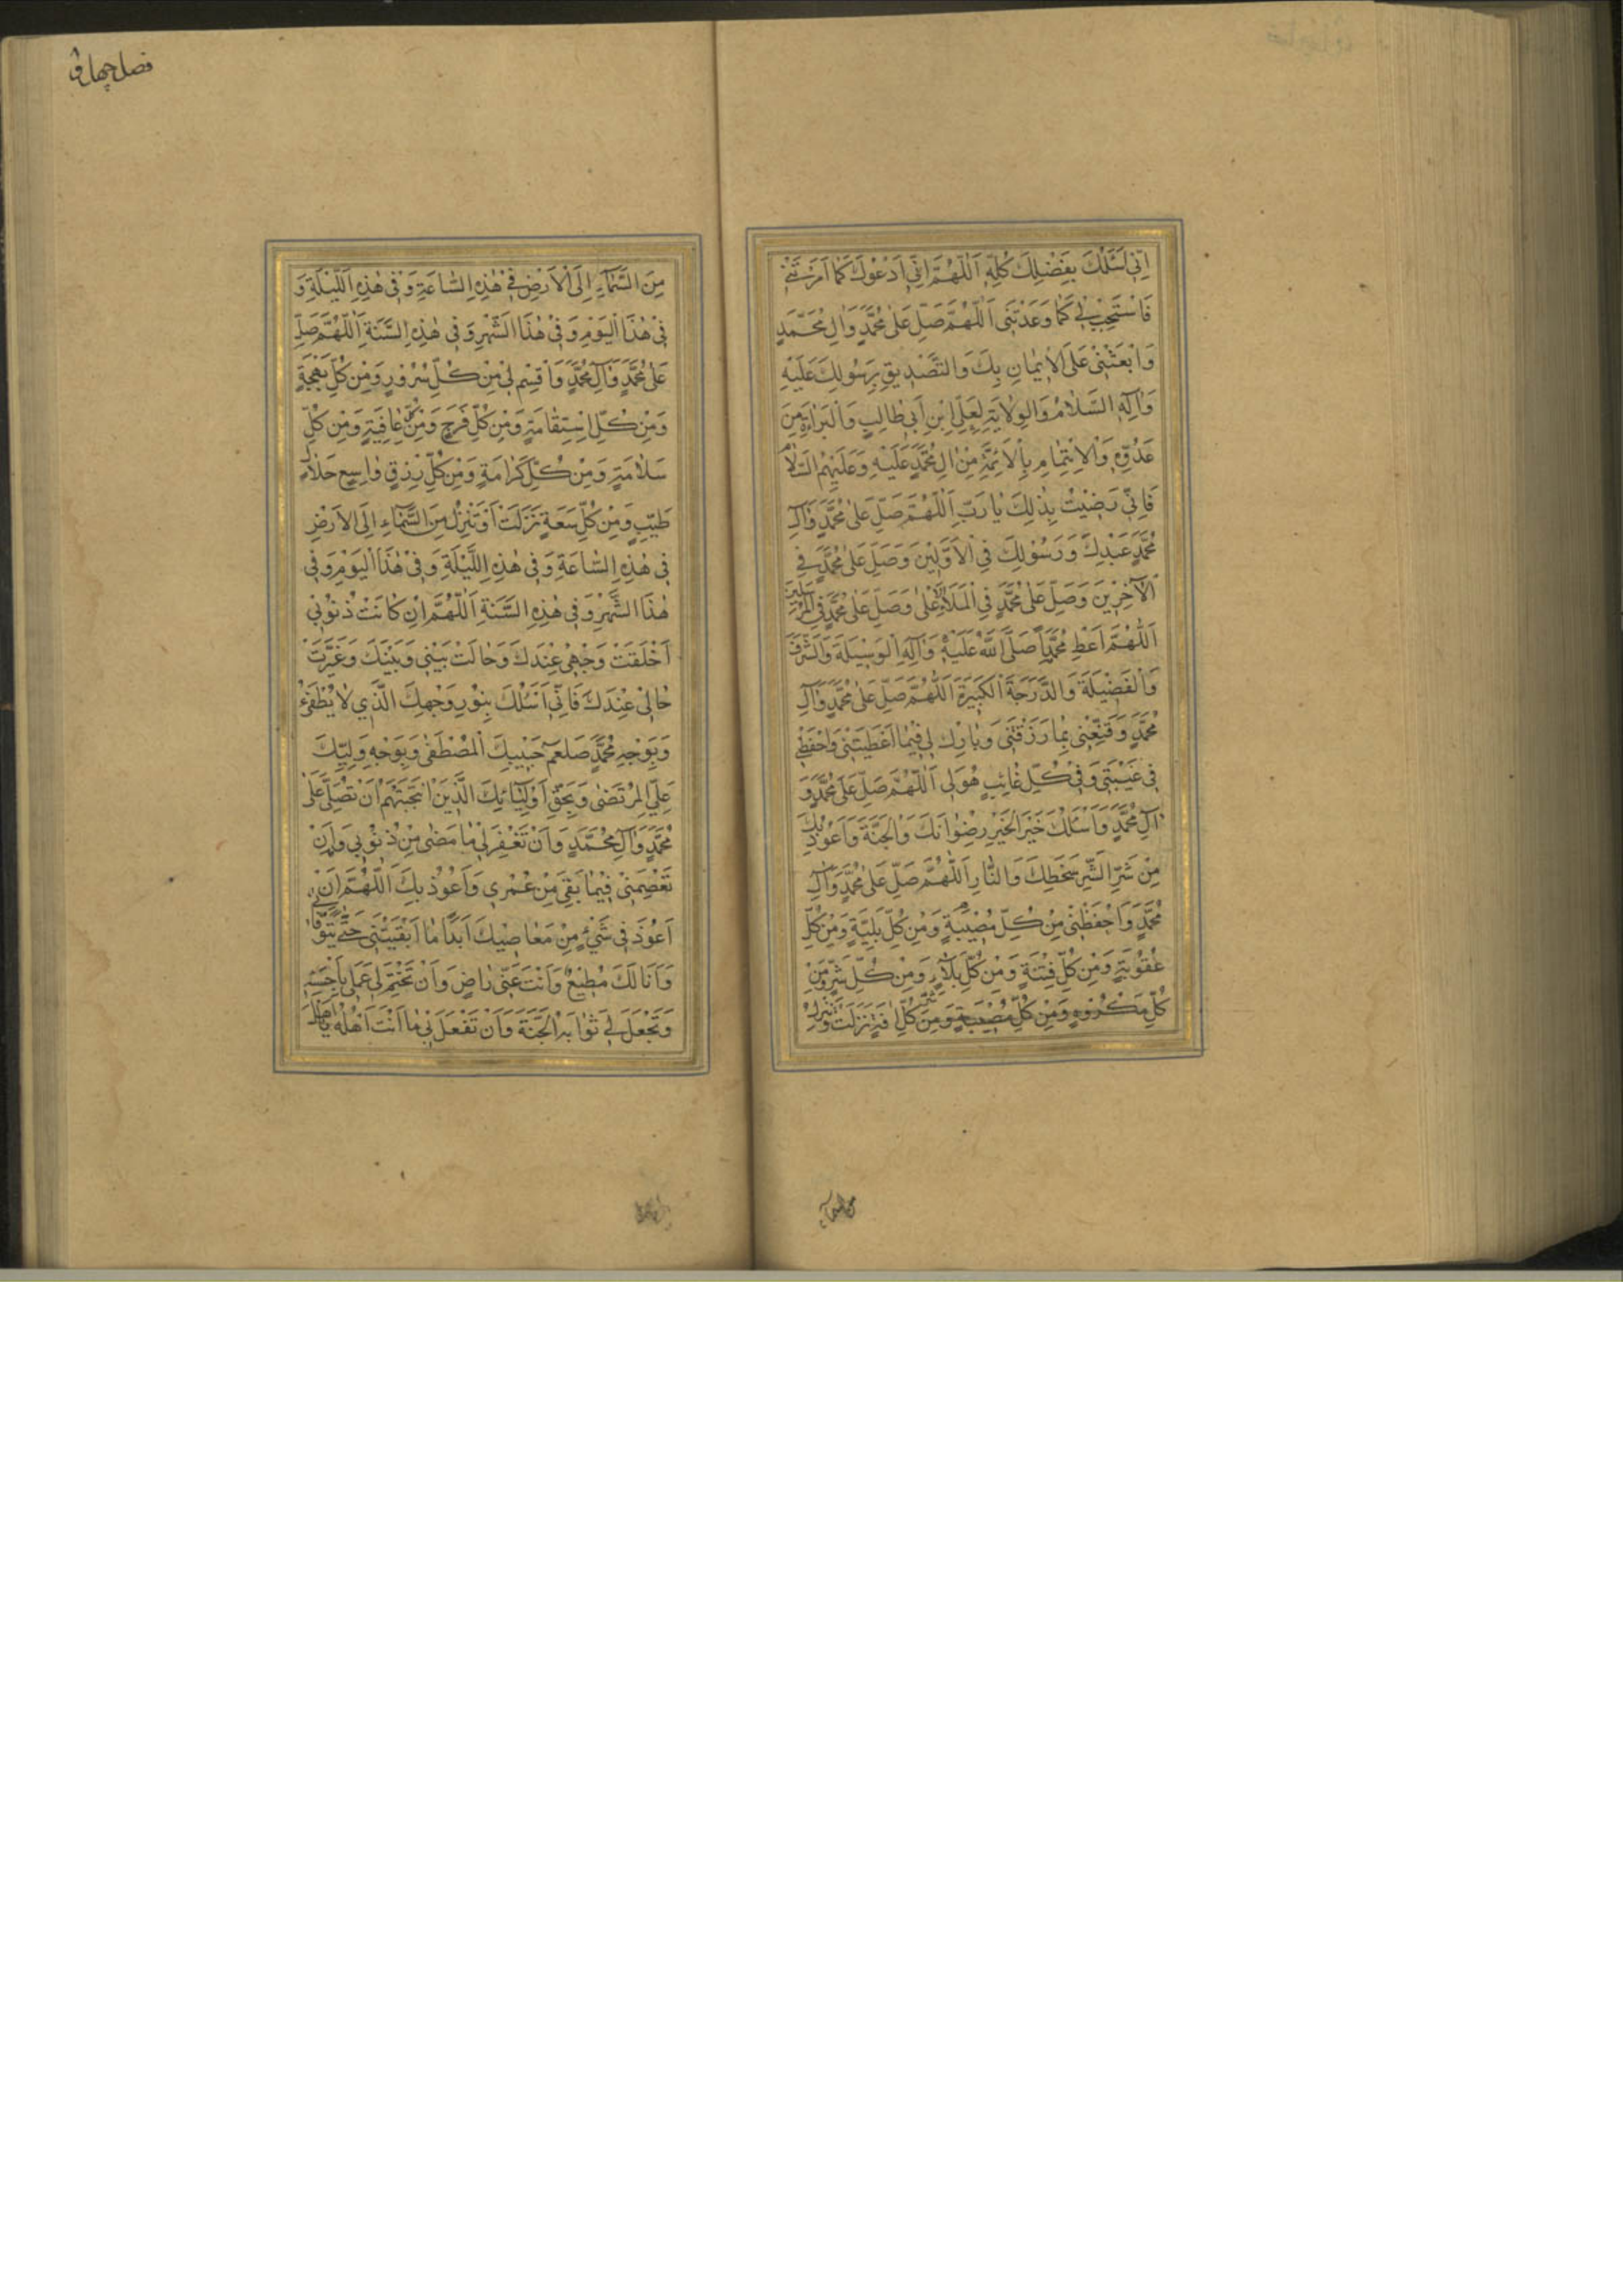 اِنّى اَسْئَلُكَ بِفَضْلِكَ كُلِّهِ اَللّٰهُمَّ اِنّى اَدْعُوكَ كَمٰا اَمَرْتَنى
فَاسْتَجِبْ لى كَمٰا وَعَدْتَنى اَللّٰهُمَّ صَلِّ عَلىٰ مُحَمَّدٍ وَاٰلِ مُحَمَّدٍ
وَابْعَثْنى عَلَى الْايمٰانِ بِكَ وَالتَّصْديقِ بِرَسُولِكَ عَلَيْهِ
وَاٰلِهِ السَّلٰامُ وَالْوِلٰايَةِ لِعَلِىِّ ابْنِ اَبى طٰالِبٍ وَالْبَرٰاءَةِ مِنْ
عَدُوِّهِ وَالْاِئْتِمٰامِ بِالْاَئِمَّةِ مِنْ اٰلِ مُحَمَّدٍ عَلَيْهِ وَعَلَيْهِمُ السَّلٰامُ
فَاِنّى رَضيتُ بِذٰلِكَ يٰا رَبِّ اَللّٰهُمَّ صَلِّ عَلىٰ مُحَمَّدٍ وَاٰلِ
مُحَمَّدٍ عَبْدِكَ وَرَسُولِكَ فِى الْاَوَّلينَ وَصَلِّ عَلىٰ مُحَمَّدٍ فِى
الْاٰخِرينَ وَصَلِّ عَلىٰ مُحَمَّدٍ فِى الْمَلَأِ الْاَعْلىٰ وَصَلِّ عَلىٰ مُحَمَّدٍ فِى الْمُرْسَلينَ
اَللّٰهُمَّ اَعْطِ مُحَمَّداً صَلَّى اللّٰهُ عَلَيْهِ وَاٰلِهِ الْوَسيلَةَ وَالشَّرَفَ
وَالْفَضيلَةَ وَالدَّرَجَةَ الْكَبيرَةَ اَللّٰهُمَّ صَلِّ عَلىٰ مُحَمَّدٍ وَاٰلِ
مُحَمَّدٍ وَقَنِّعْنى بِمٰا رَزَقْتَنى وَبٰارِكْ لى فيمٰا اَعْطَيْتَنى وَاحْفَظْنى
فى غَيْبَتى وَفى كُلِّ غٰائِبٍ هُوَ لى اَللّٰهُمَّ صَلِّ عَلىٰ مُحَمَّدٍ وَ
اٰلِ مُحَمَّدٍ وَاَسْئَلُكَ خَيْرَ الْخَيْرِ رِضْوٰانَكَ وَالْجَنَّةَ وَاَعُوذُ بِكَ
مِنْ شَرِّ الشَّرِّ سَخَطِكَ وَالنّٰارِ اَللّٰهُمَّ صَلِّ عَلىٰ مُحَمَّدٍ وَاٰلِ
مُحَمَّدٍ وَاحْفَظْنى مِنْ كُلِّ مُصيبَةٍ وَمِنْ كُلِّ بَلِيَّةٍ وَمِنْ كُلِّ
عُقُوبَةٍ وَمِنْ كُلِّ فِتْنَةٍ وَمِنْ كُلِّ بَلٰاءٍ وَمِنْ كُلِّ شَرٍّ وَمِنْ
كُلِّ مَكْرُوهٍ وَمِنْ كُلِّ مُصيبَةٍ وَمِنْ كُلِّ اٰفَةٍ نَزَلَتْ
من السماء
فصل چهل
مِنَ السَّمٰاءِ اِلَى الْاَرْضِ فى هٰذِهِ السّٰاعَةِ وَفى هٰذِهِ اللَّيْلَةِ وَ
فى هٰذَا الْيَوْمِ وَفى هٰذَا الشَّهْرِ وَفى هٰذِهِ السَّنَةِ اَللّٰهُمَّ صَلِّ
عَلىٰ مُحَمَّدٍ وَاٰلِ مُحَمَّدٍ وَاقْسِمْ لى مِنْ كُلِّ سُرُورٍ وَمِنْ كُلِّ بَهْجَةٍ
وَمِنْ كُلِّ اسْتِقٰامَةٍ وَمِنْ كُلِّ فَرَجٍ وَمِنْ كُلِّ عٰافِيَةٍ وَمِنْ كُلِّ
سَلٰامَةٍ وَمِنْ كُلِّ كَرٰامَةٍ وَمِنْ كُلِّ رِزْقٍ وٰاسِعٍ حَلٰالٍ
طَيِّبٍ وَمِنْ كُلِّ سَعَةٍ نَزَلَتْ اَوْ تَنْزِلُ مِنَ السَّمٰاءِ اِلَى الْاَرْضِ
فى هٰذِهِ السّٰاعَةِ وَفى هٰذِهِ اللَّيْلَةِ وَفى هٰذَا الْيَوْمِ وَفى
هٰذَا الشَّهْرِ وَفى هٰذِهِ السَّنَةِ اَللّٰهُمَّ اِنْ كٰانَتْ ذُنُوبى
اَخْلَقَتْ وَجْهى عِنْدَكَ وَحٰالَتْ بَيْنى وَبَيْنَكَ وَغَيَّرَتْ
حٰالى عِنْدَكَ فَاِنّى اَسْئَلُكَ بِنُورِ وَجْهِكَ الَّذى لٰا يُطْفَىءُ
وَبِوَجْهِ مُحَمَّدٍ صَلعم حَبيبِكَ الْمُصْطَفىٰ وَبِوَجْهِ وَلِيِّكَ
عَلِىٍّ الْمُرْتَضىٰ وَبِحَقِّ اَوْلِيٰائِكَ الَّذينَ انْتَجَبْتَهُمْ اَنْ تُصَلِّىَ عَلىٰ
مُحَمَّدٍ وَاٰلِ مُحَمَّدٍ وَاَنْ تَغْفِرَ لى مٰا مَضىٰ مِنْ ذُنُوبى وَاَنْ
تَعْصِمَنى فيمٰا بَقِىَ مِنْ عُمْرى وَاَعُوذُ بِكَ اَللّٰهُمَّ اَنْ
اَعُودَ فى شَىْءٍ مِنْ مَعٰاصيكَ اَبَداً مٰا اَبْقَيْتَنى حَتّىٰ تَتَوَفّٰانى
وَاَنَا لَكَ مُطيعٌ وَاَنْتَ عَنّى رٰاضٍ وَاَنْ تَخْتِمَ لى عَمَلى بِاَحْسَنِهِ
وَتَجْعَلَ لى ثَوٰابَهُ الْجَنَّةَ وَاَنْ تَفْعَلَ بى مٰا اَنْتَ اَهْلُهُ يٰا اَهْلَ